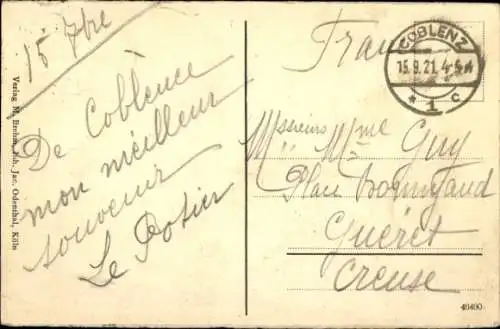 15 7bre
De Coblence
mon meilleur
souvenir
Le Potier
Verlag M. Brehm, Joh. Jac. Odenthal, Köln
COBLENZ
15.9.21. 4-5 N
* 1 c
Messieurs Mme Guy
Place
Guéret
Creuse
46400